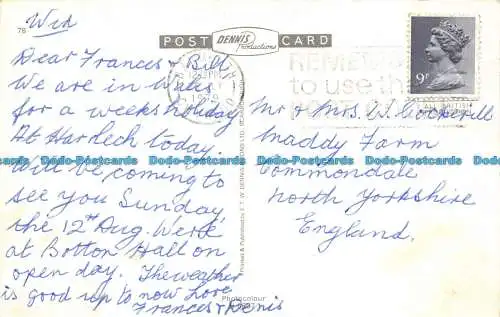 Wed
78
POST CARD
DENNIS
Productions
Dear Frances & Bill
We are in Wales
for a weeks holiday
At Harlech today.
Will be coming to
see you Sunday,
the 12th Aug. Were
at Botton Hall on
open day. The weather
is good up to now Love
Frances & Denis
REMEMBER
to use the
POST
9P
Mr & Mrs. W. Cockerill
Maddy Farm
Commondale
North Yorkshire
England.
Printed & Published by E. T. W. DENNIS & SONS LTD.
Photocolour
Bodo-Postcards Bodo-Postcards Bodo-Postcards Bodo-Postcards Bodo-Postcards